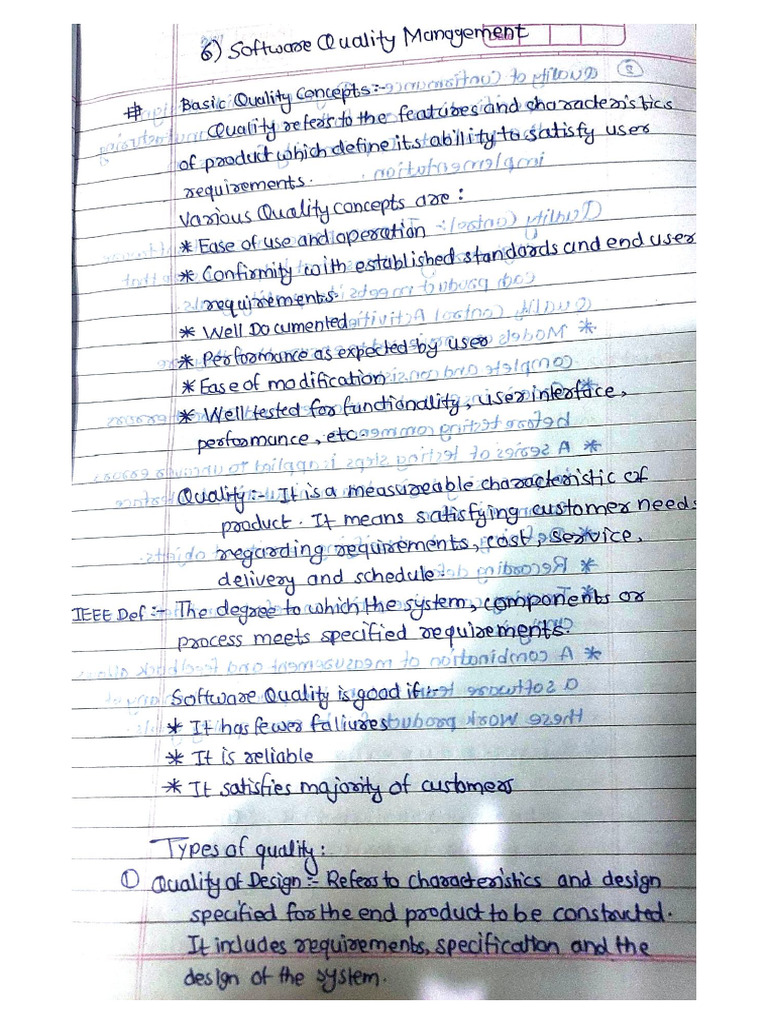 6) Software Quality Management
# Basic Quality Concepts:-
Quality refers to the features and characteristics
of product which define its ability to satisfy user
requirements.
Various Quality concepts are:
* Ease of use and operation
* Confirmity with established standards and end user
requirements.
* Well Documented
* Performance as expected by user
* Ease of modification
* Well tested for functionality, user interface,
performance, etc.
Quality:- It is a measureable characteristic of
product. It means satisfying customer needs
regarding requirements, cost, service,
delivery and schedule.
IEEE Def:- The degree to which the system, components or
process meets specified requirements.
Software Quality is good if:-
* It has fewer faliures
* It is reliable
* It satisfies majority of customers
Types of quality:
① Quality of Design:- Refers to characteristics and design
specified for the end product to be constructed.
It includes requirements, specification and the
design of the system.